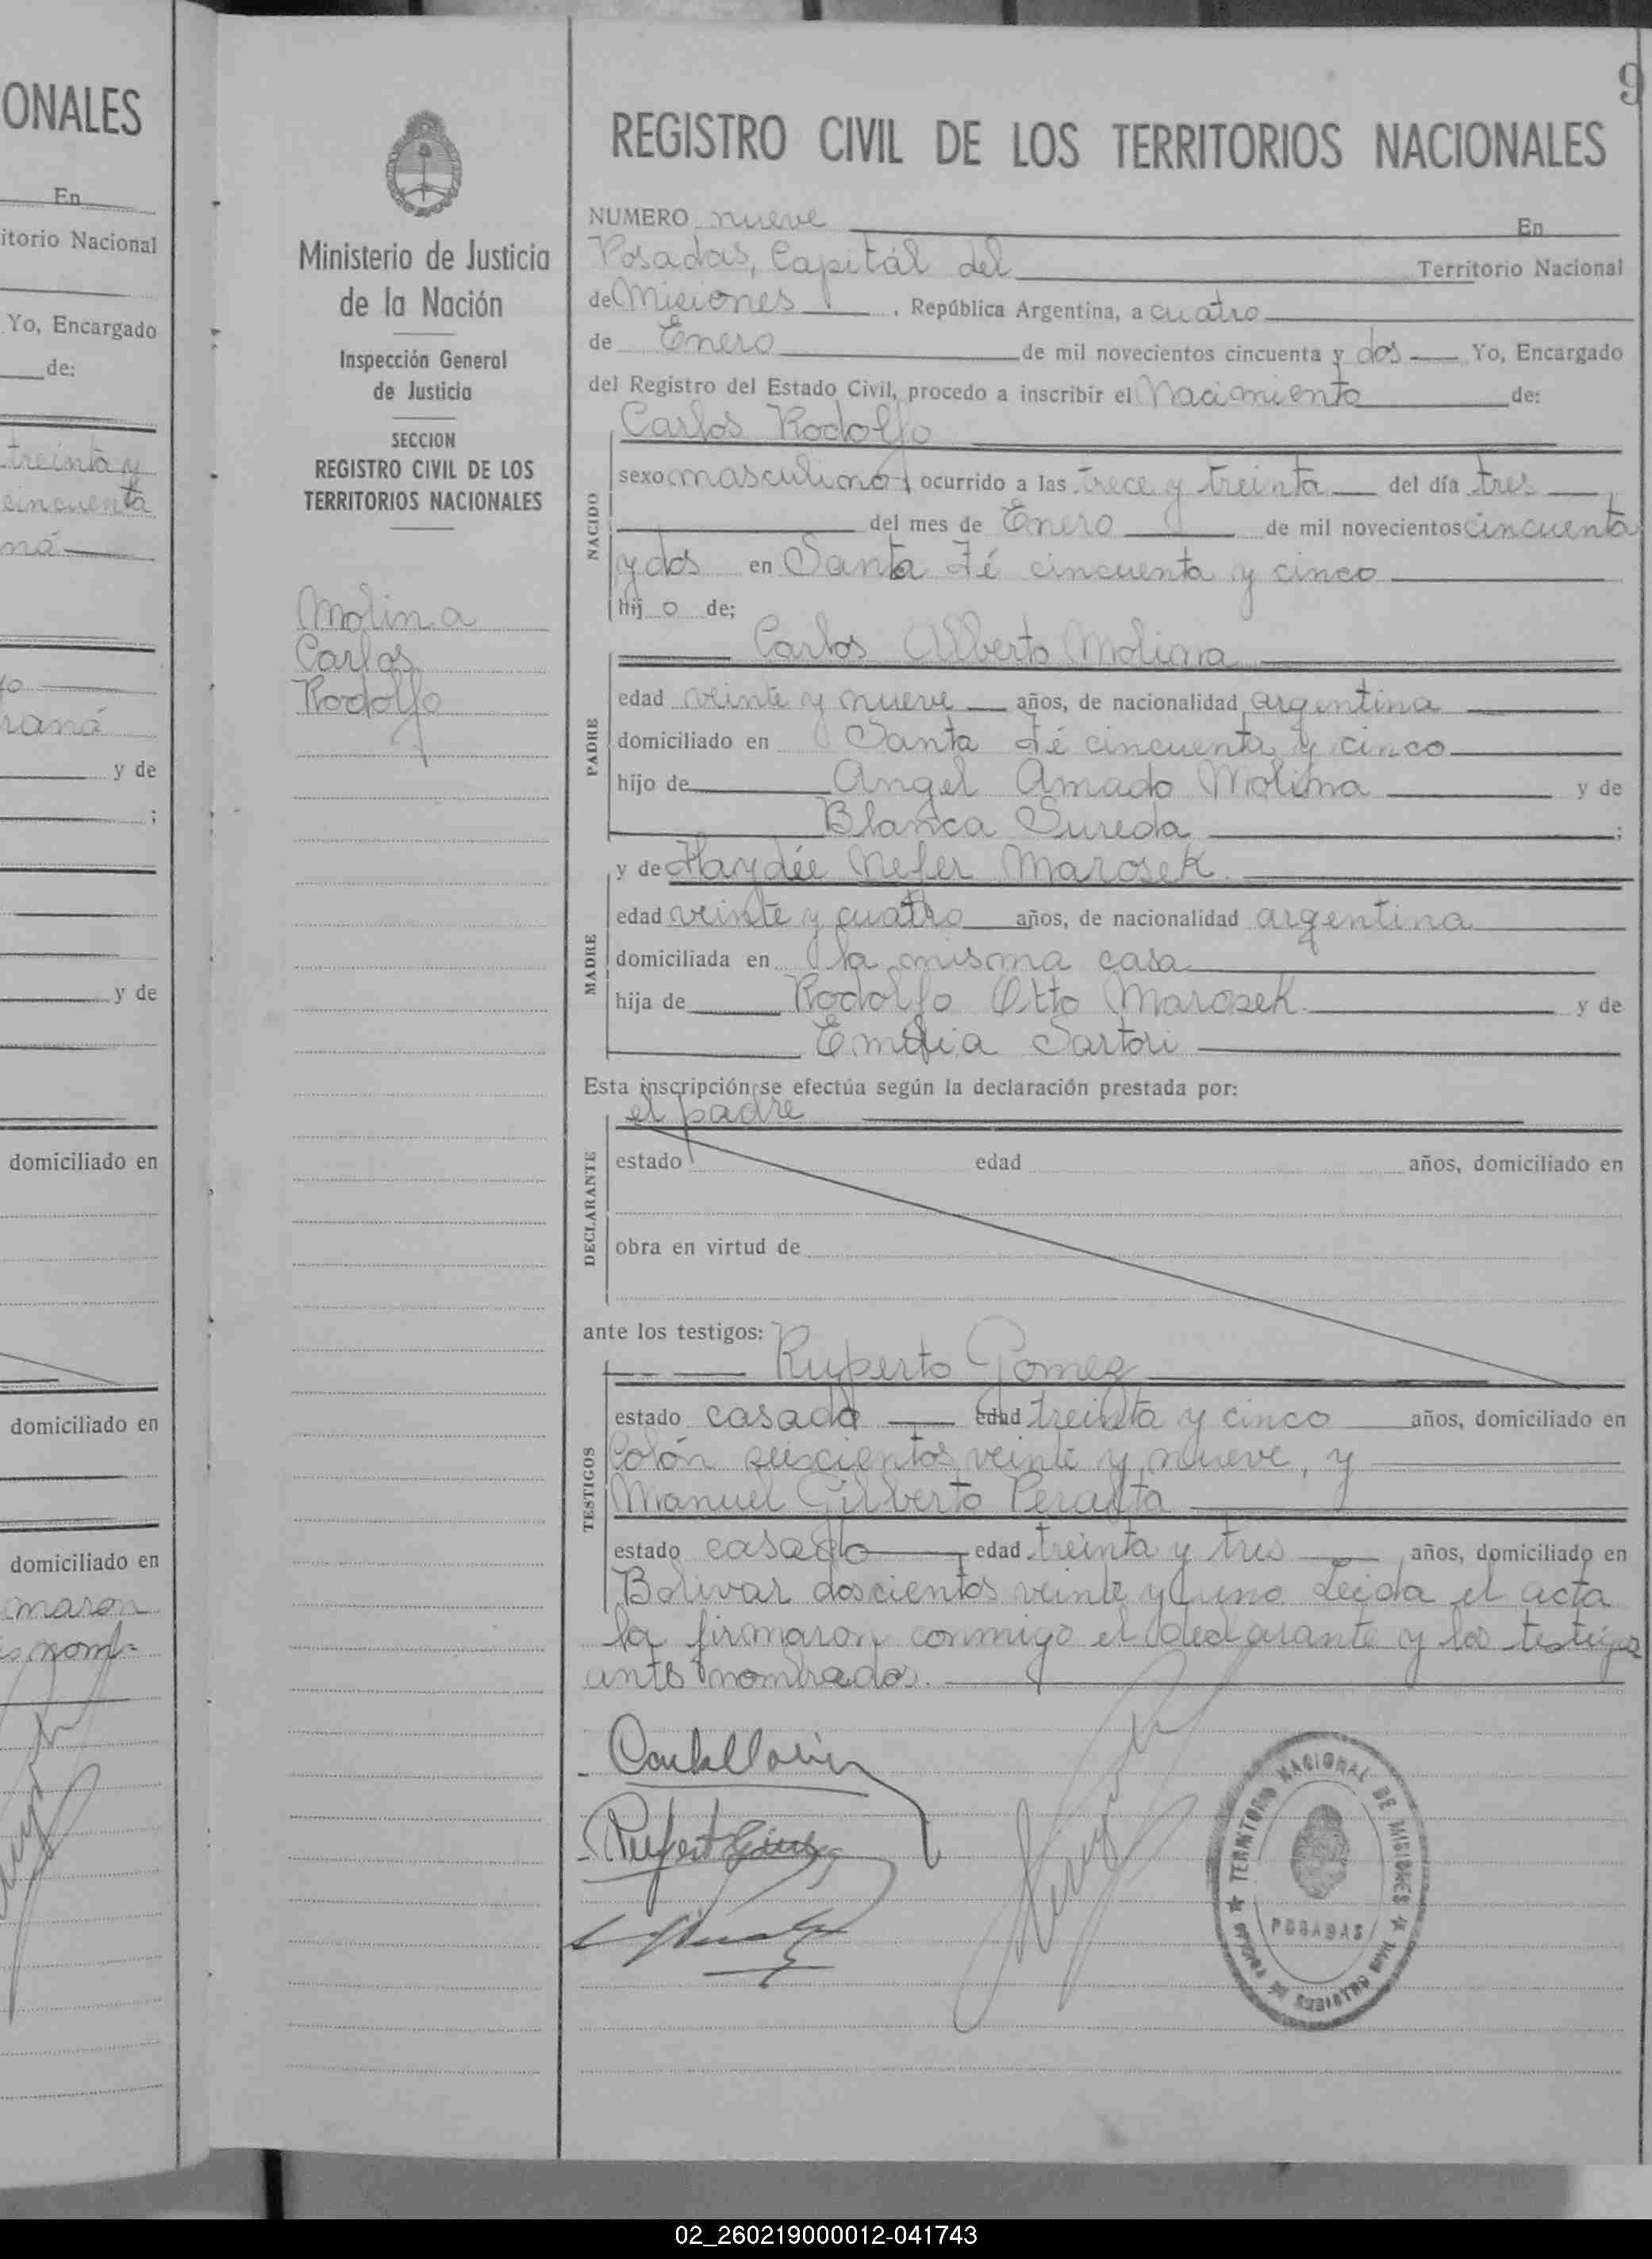 ONALES
En
itorio Nacional
Yo, Encargado
de:
treinta y
cincuenta
ná
raná
y de
;
y de
domiciliado en
domiciliado en
domiciliado en
maron
nom-
Ministerio de Justicia
de la Nación
Inspección General
de Justicia
SECCION
REGISTRO CIVIL DE LOS
TERRITORIOS NACIONALES
Molina
Carlos
Rodolfo
9
REGISTRO CIVIL DE LOS TERRITORIOS NACIONALES
NUMERO nueve En
Posadas, Capitál del Territorio Nacional
de Misiones, República Argentina, a cuatro
de Enero de mil novecientos cincuenta y dos Yo, Encargado
del Registro del Estado Civil, procedo a inscribir el Nacimiento de:
Carlos Rodolfo
NACIDO
sexo masculino ocurrido a las trece y treinta del día tres
del mes de Enero de mil novecientos cincuenta
y dos en Santa Fé cincuenta y cinco
hij o de;
Carlos Alberto Molina
PADRE
edad veinte y nueve años, de nacionalidad argentina
domiciliado en Santa Fé cincuenta y cinco
hijo de Angel Amado Molina y de
Blanca Sureda ;
y de Haydée Nefer Marosek
MADRE
edad veinte y cuatro años, de nacionalidad argentina
domiciliada en la misma casa
hija de Rodolfo Otto Marosek y de
Emilia Sartori
Esta inscripción se efectúa según la declaración prestada por:
el padre
DECLARANTE
estado edad años, domiciliado en
obra en virtud de
ante los testigos:
Ruperto Gomez
TESTIGOS
estado casado edad treinta y cinco años, domiciliado en
Colón seiscientos veinte y nueve, y
Manuel Gilberto Peralta
estado casado edad treinta y tres años, domiciliado en
Bolivar doscientos veinte y uno Leida el acta
la firmaron conmigo el declarante y los testigos
antes nombrados.
TERRITORIO NACIONAL DE MISIONES
POSADAS
02_260219000012-041743